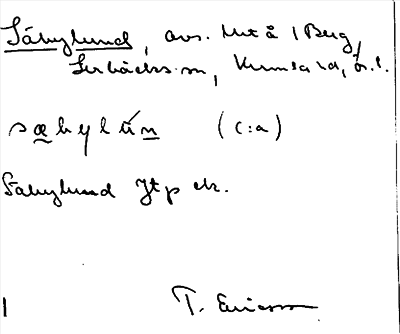 Säbylund, avs. Mtå i Berg,
Lerbäcks sn, Kumla hd, ör.l.
sæbylún (c:a)
Säbylund Jtp ek.
T. Ericsson